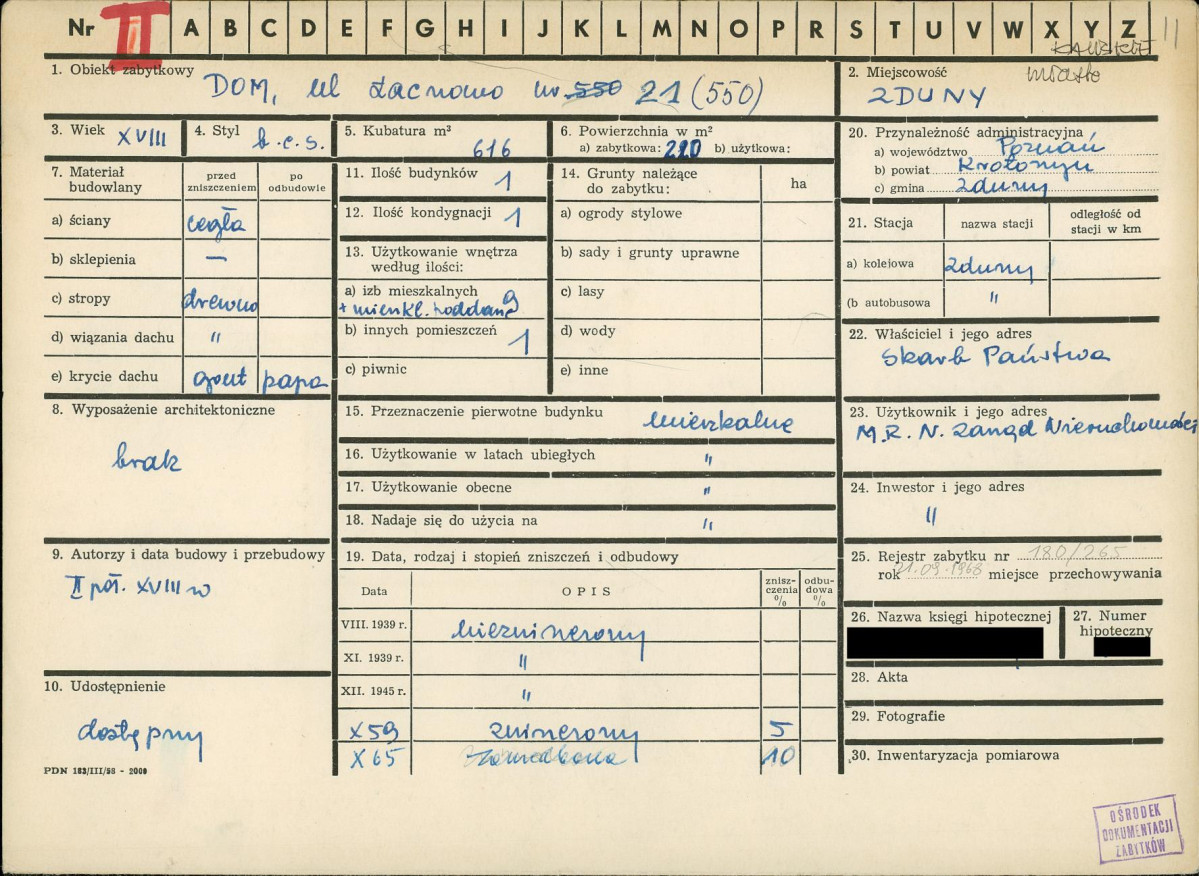 Nr II A B C D E F G H I J K L M N O P R S T U V W X Y Z 11
KALISKIE
miasto
1. Obiekt zabytkowy DOM, ul Łacnowo nr 550 21 (550)
2. Miejscowość
ZDUNY
3. Wiek XVIII
4. Styl b.c.s.
5. Kubatura m³
616
6. Powierzchnia w m²
a) zabytkowa: 220 b) użytkowa:
7. Materiał budowlany
przed zniszczeniem
po odbudowie
a) ściany cegła
b) sklepienia —
c) stropy drewno
d) wiązania dachu "
e) krycie dachu gont papa
8. Wyposażenie architektoniczne
brak
9. Autorzy i data budowy i przebudowy
II poł. XVIII w
10. Udostępnienie
dostępny
PDN 183/III/58 - 2000
11. Ilość budynków 1
12. Ilość kondygnacji 1
13. Użytkowanie wnętrza
według ilości:
a) izb mieszkalnych 9
+ mieszkl. poddasze
b) innych pomieszczeń 1
c) piwnic
14. Grunty należące
do zabytku:
ha
a) ogrody stylowe
b) sady i grunty uprawne
c) lasy
d) wody
e) inne
15. Przeznaczenie pierwotne budynku mieszkalne
16. Użytkowanie w latach ubiegłych "
17. Użytkowanie obecne "
18. Nadaje się do użycia na "
19. Data, rodzaj i stopień zniszczeń i odbudowy
Data
OPIS
zniszczenia %
odbudowa %
VIII. 1939 r. niezniszczony
XI. 1939 r. "
XII. 1945 r. "
X 59 zniszczony 5
X 65 10
20. Przynależność administracyjna
a) województwo Poznań
b) powiat Krotoszyn
c) gmina Zduny
21. Stacja
nazwa stacji
odległość od
stacji w km
a) kolejowa Zduny
(b autobusowa "
22. Właściciel i jego adres
Skarb Państwa
23. Użytkownik i jego adres
M.R.N. Zarząd Nieruchomości
24. Inwestor i jego adres
"
25. Rejestr zabytku nr 180/265
rok 21.09.1968 miejsce przechowywania
26. Nazwa księgi hipotecznej
27. Numer
hipoteczny
28. Akta
29. Fotografie
30. Inwentaryzacja pomiarowa
OŚRODEK
DOKUMENTACJI
ZABYTKÓW